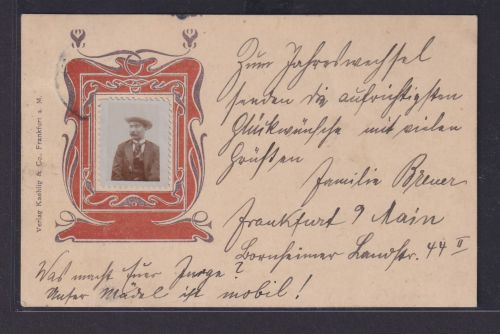 Zum Jahreswechsel
senden die aufrichtigsten
Glükwünsche mit vielen
Grüßen
Familie Breuer
Frankfurt a Main
Bornheimer Landstr. 44 II
Was macht Euer Junge?
Unser Mädel ist mobil!
Verlag Kaehlig & Co., Frankfurt a. M.